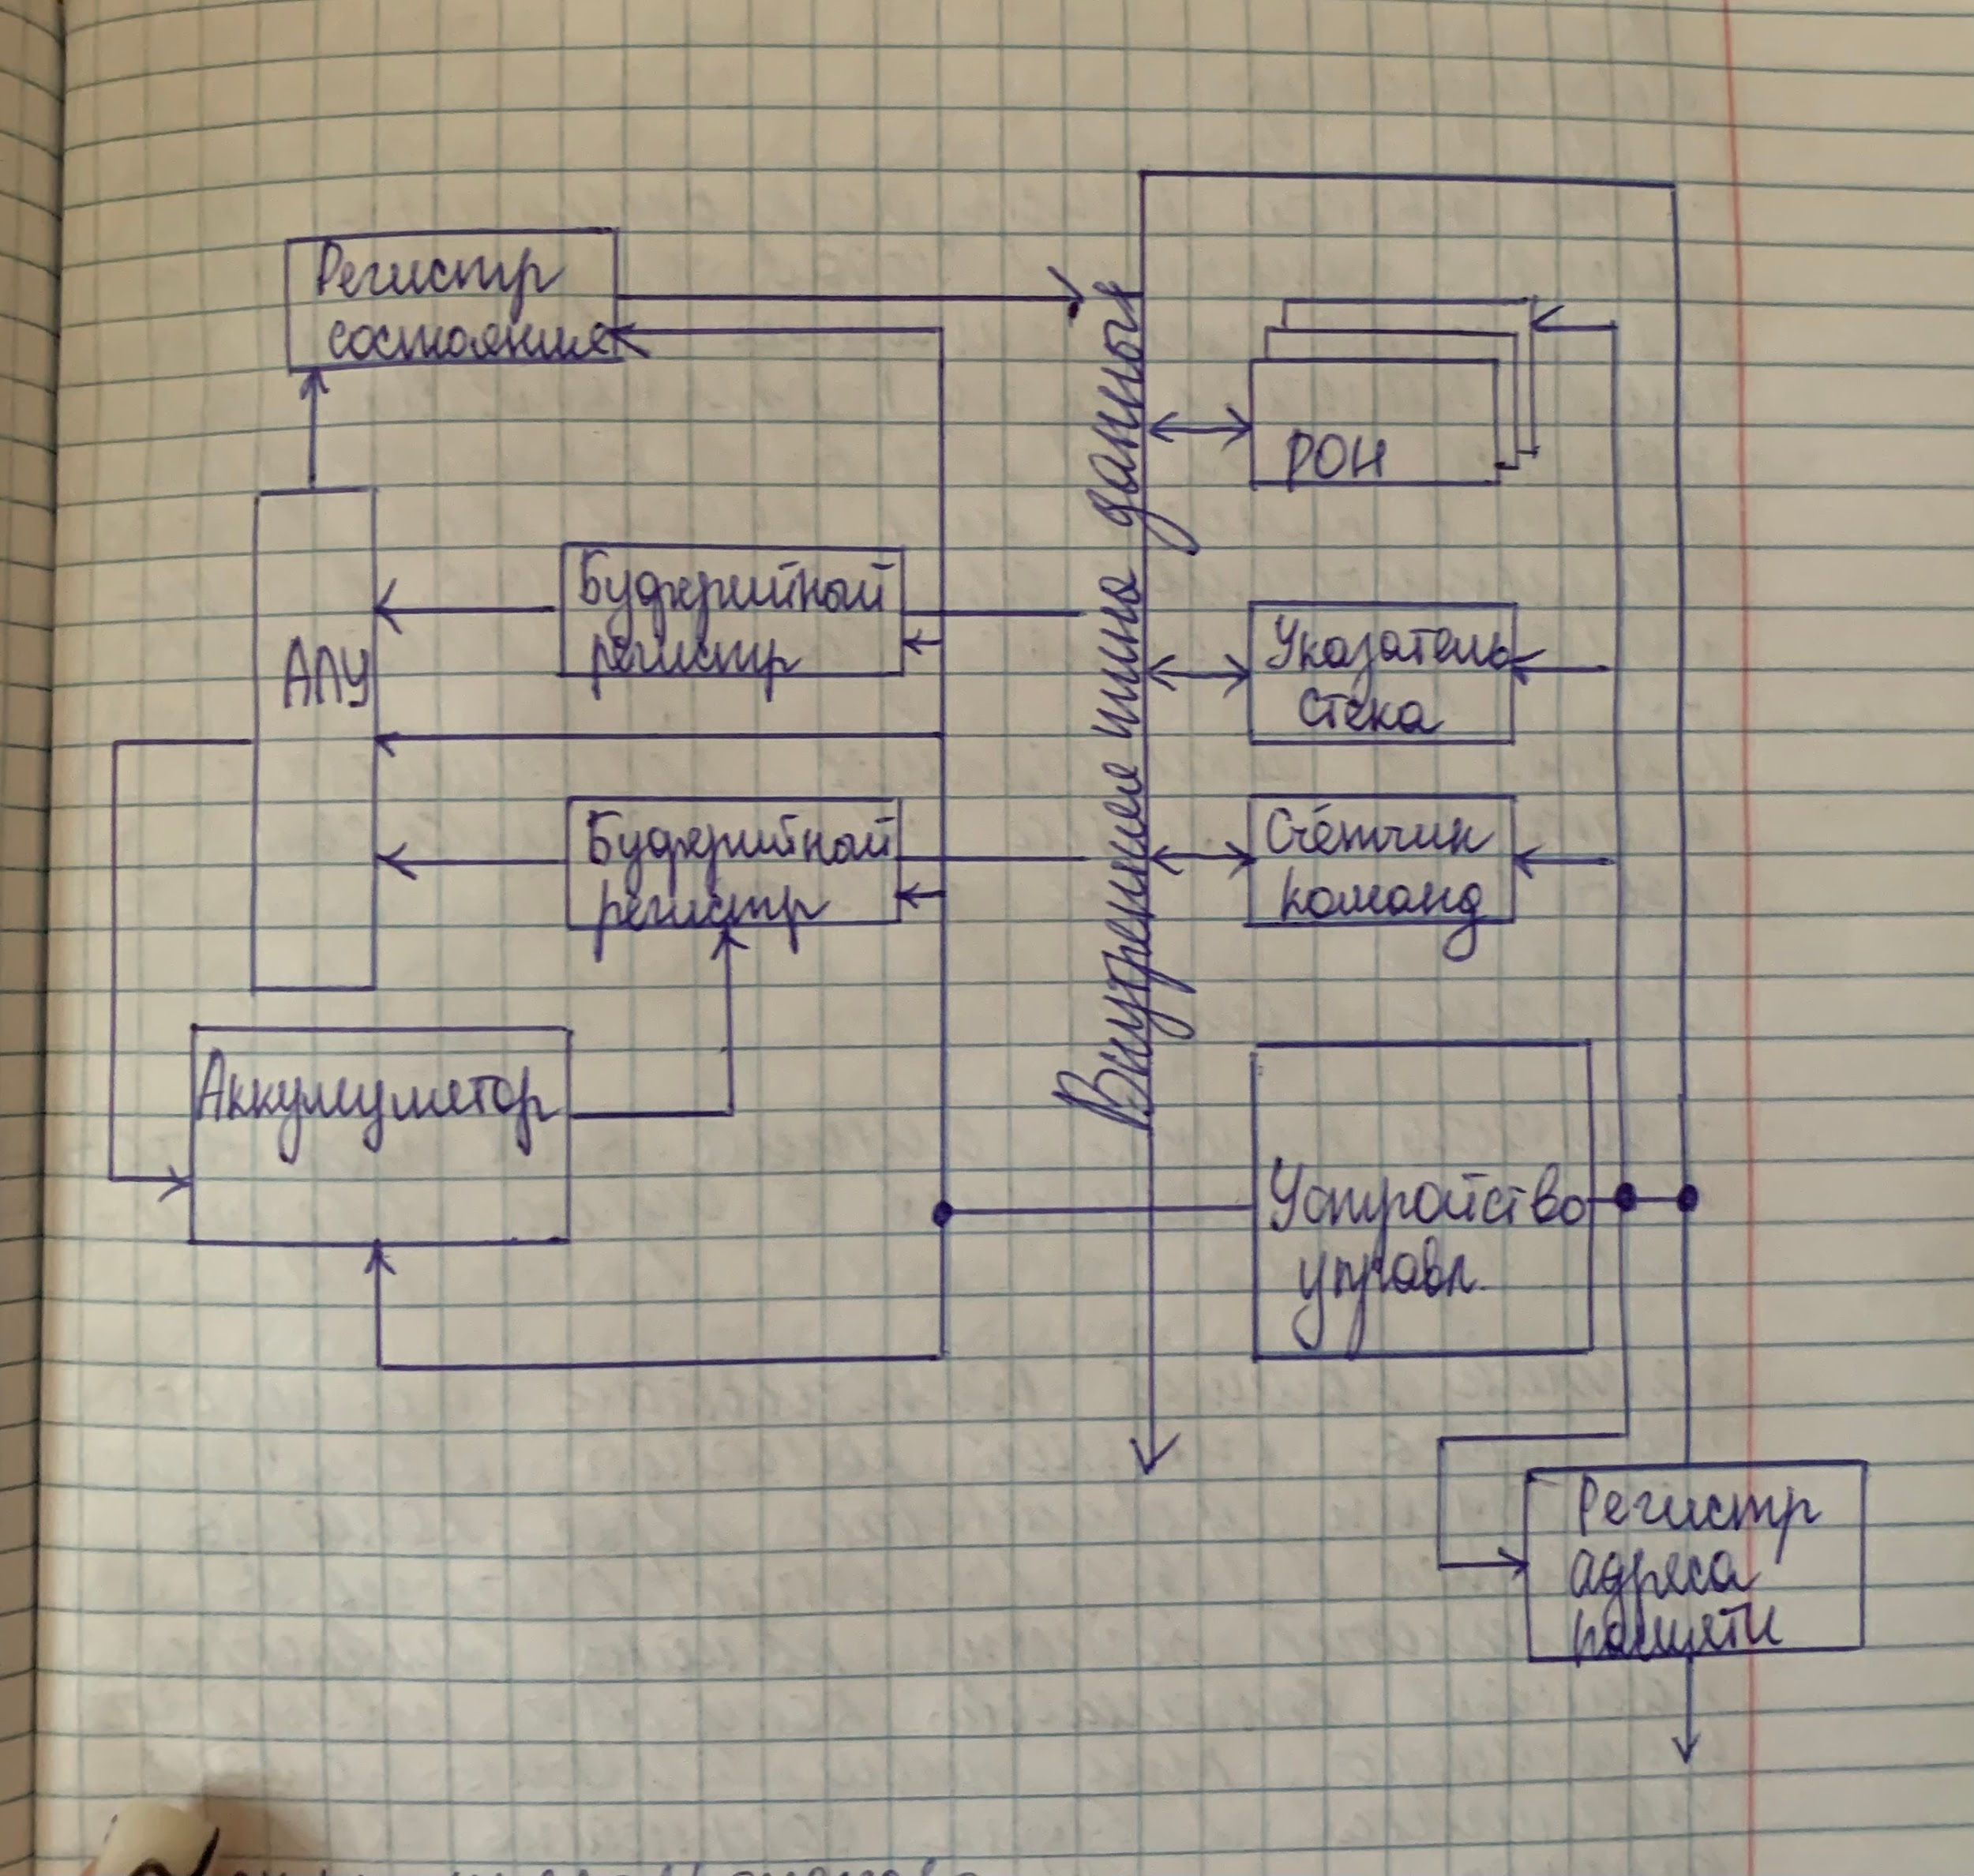 Регистр
состояния
РОН
Внутренние шина данных
Буферийный
регистр
АЛУ
Указатель
стека
Буферийный
регистр
Счётчик
команд
Аккумулятор
Устройство
управл.
Регистр
адреса
памяти